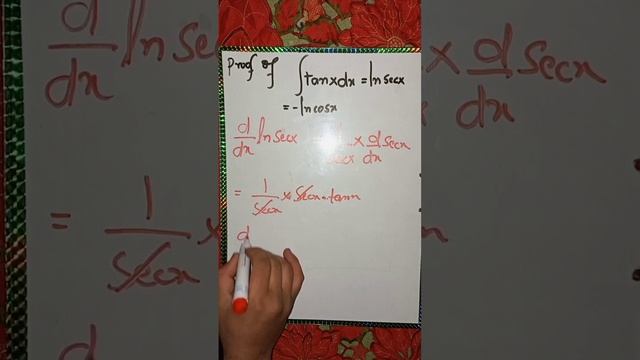 Proof of ∫tanxdx = ln secx
= -ln cosx
d/dx ln secx × d/dx secx
= 1/secx × secx · tanx
d